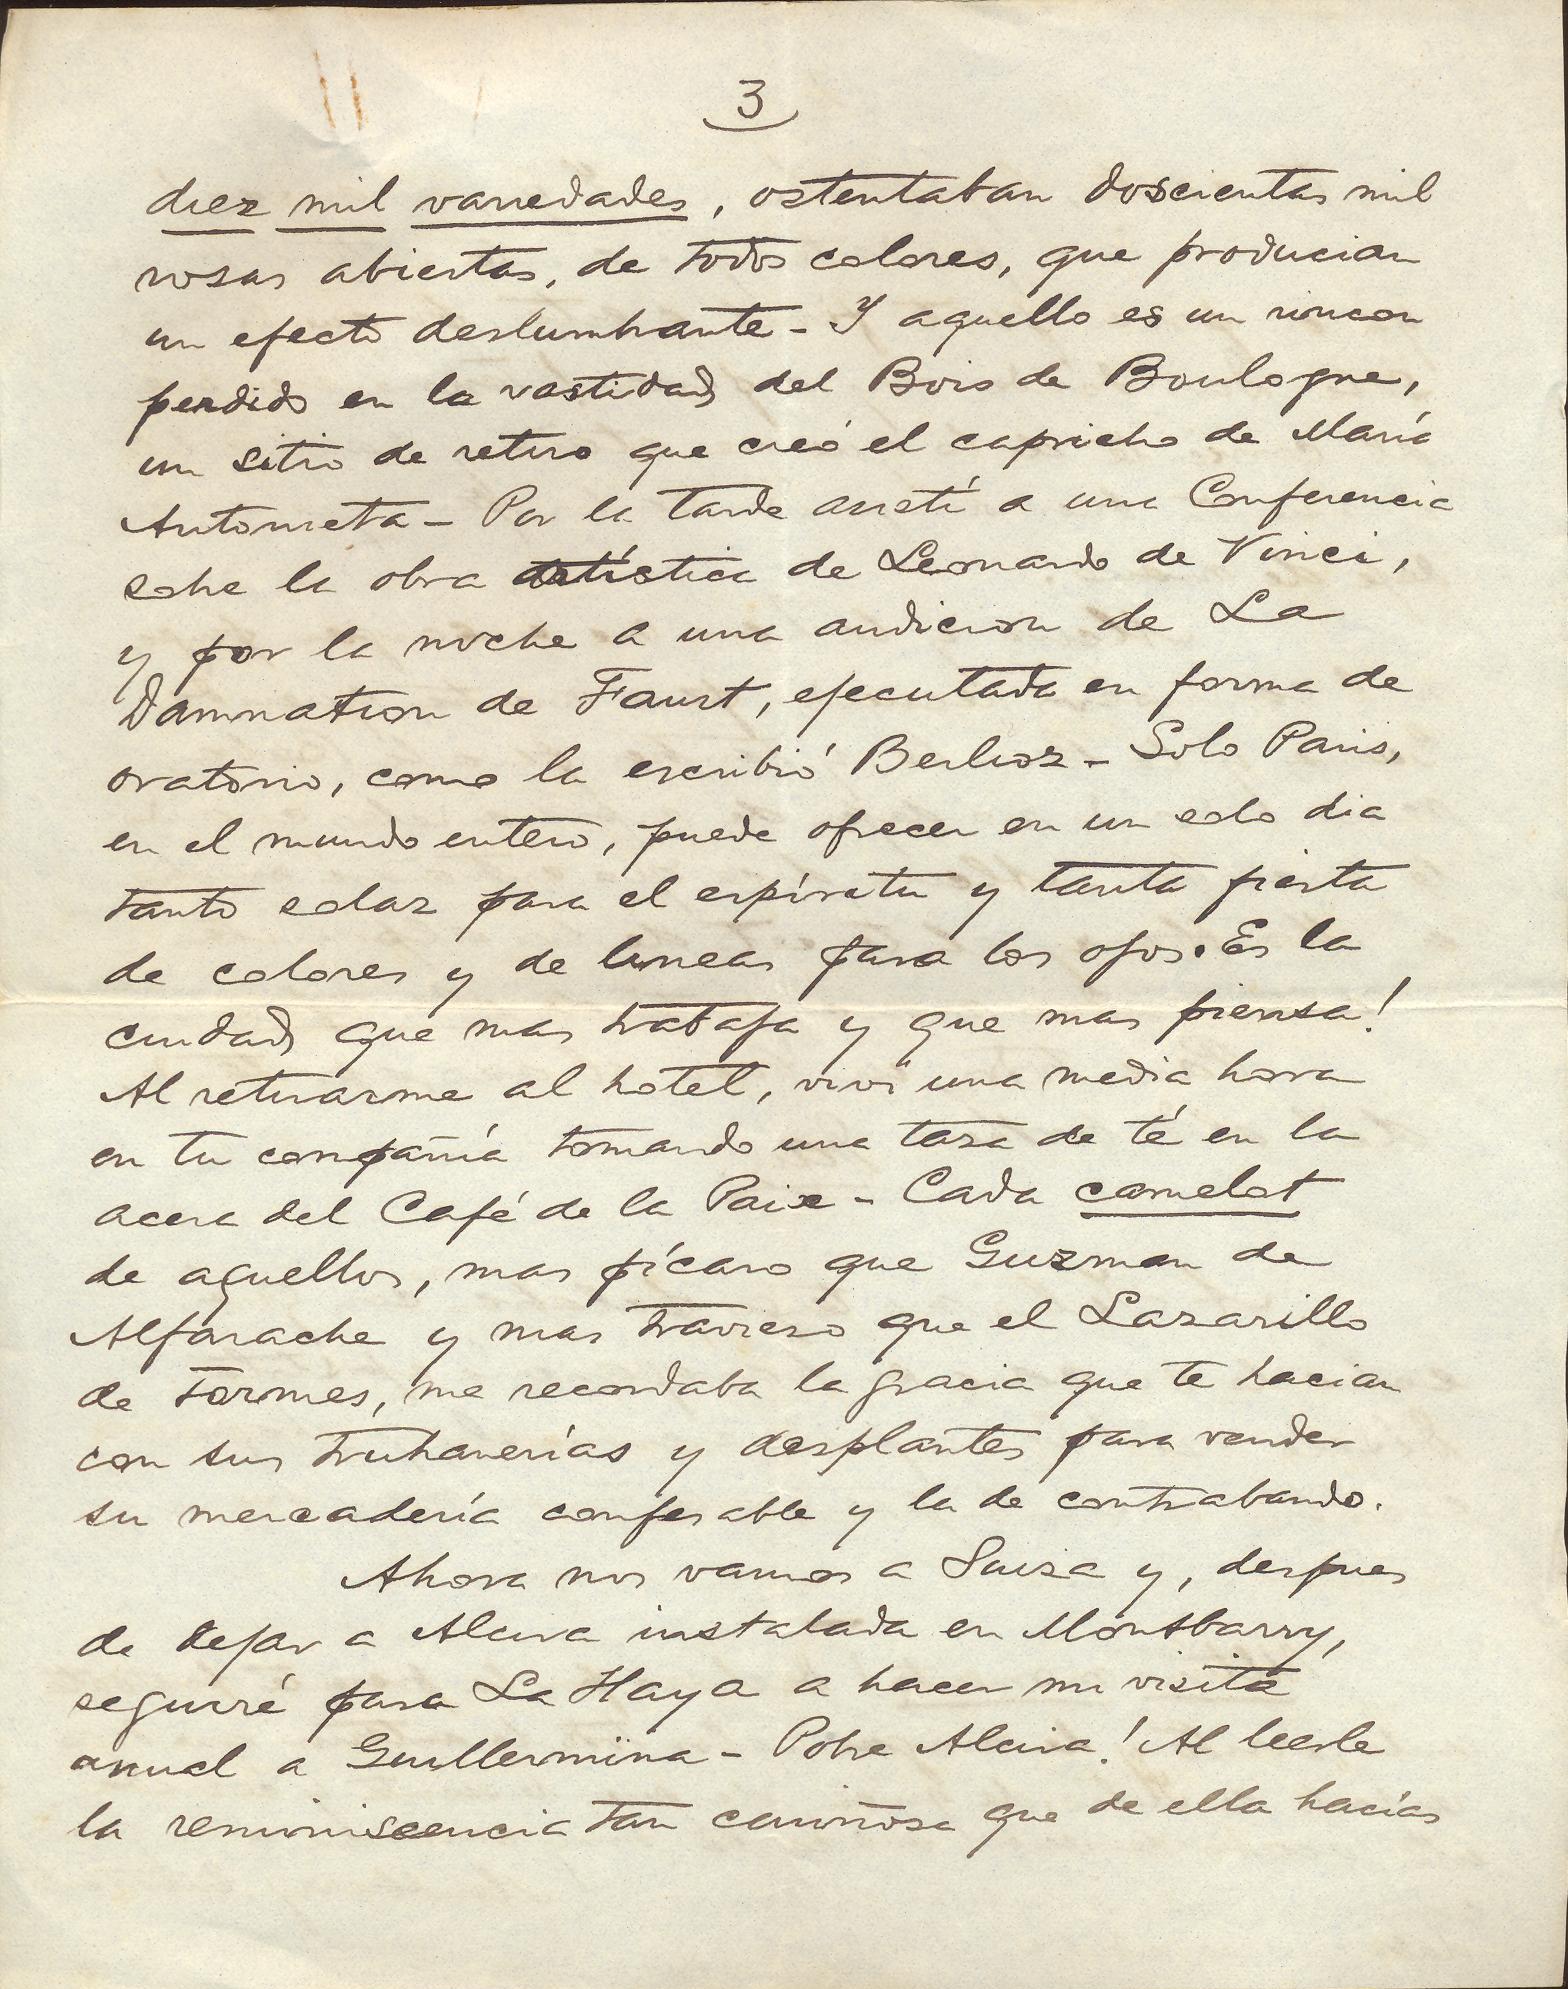 3
diez mil variedades, ostentaban doscientas mil
rosas abiertas, de todos colores, que producian
un efecto deslumbrante - Y aquello es un rincon
perdido en la vastidad del Bois de Boulogne,
un sitio de retiro que creó el capricho de María
Antonieta - Por la tarde asistí a una Conferencia
sobre la obra artística de Leonardo de Vinci,
y por la noche a una audicion de La
Damnation de Faust, ejecutada en forma de
oratorio, como la escribió Berlioz - Solo Paris,
en el mundo entero, puede ofrecer en un solo dia
tanto solaz para el espíritu y tanta fiesta
de colores y de lineas para los ojos. Es la
ciudad que mas trabaja y que mas piensa!
Al retirarme al hotel, viví una media hora
en tu compañía tomando una taza de té en la
acera del Café de la Paix - Cada camelot
de aquellos, mas pícaro que Guzman de
Alfarache y mas travieso que el Lazarillo
de Tormes, me recordaba la gracia que te hacian
con sus truhanerías y desplantes para vender
su mercadería confesable y la de contrabando.
Ahora nos vamos a Suiza y, despues
de dejar a Alcira instalada en Montbarry,
seguiré para La Haya a hacer mi visita
anual a Guillermina - Pobre Alcira! Al leerle
la reminiscencia tan cariñosa que de ella hacías